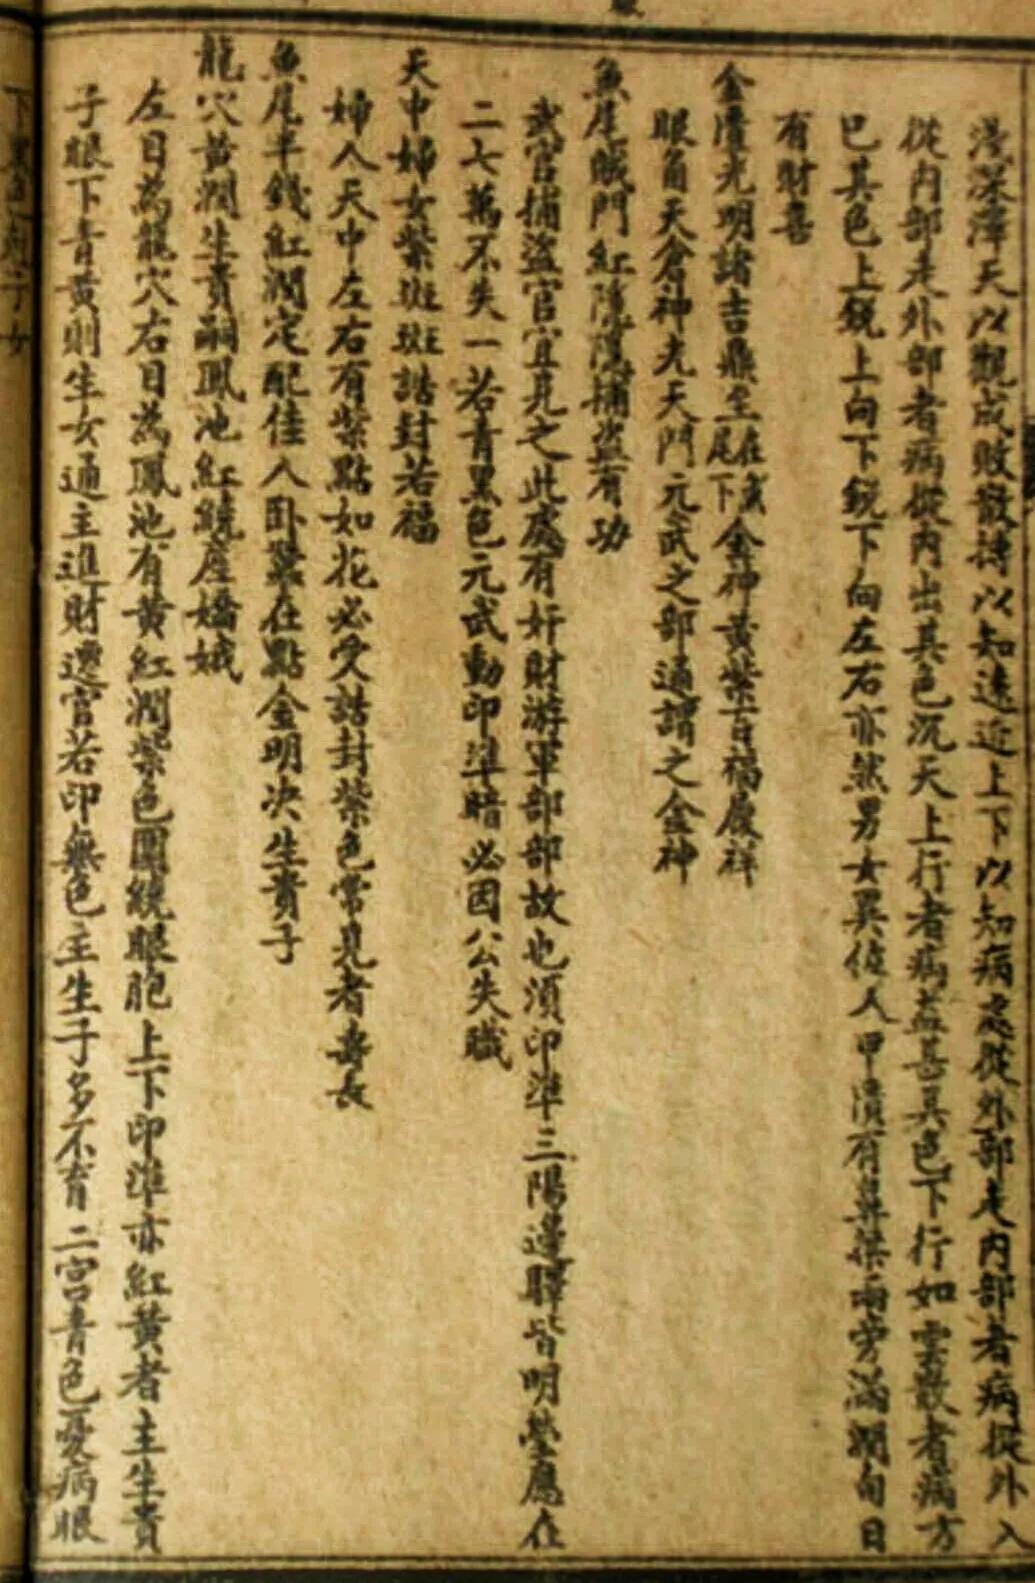 淺深澤夭以觀成敗散摶以知遠近上下以知病處從外部走內部者病從外入
從內部走外部者病從內出其色沉夭上行者病益甚其色下行如雲散者病方
已其色上銳上向下銳下向左右亦然男女異位人甲潰有鼻準兩旁滿潤旬日
有財喜
金匱光明諸吉鼎至在魚尾下金神黃紫百福展祥
眼角天倉神光天門元武之部通謂之金神
魚尾賊門紅隱隱捕盜有功
武官捕盜官宜見之此處有奸財游軍部部故也須印準三陽邊驛皆明瑩應在
二七萬不失一若青黑色元武動印準暗必因公失職
天中婦女紫斑斑誥封若福
婦人天中左右有紫點如花必受誥封紫色常見者壽長
魚尾半錢紅潤定配佳人卧蠶在點金明决生貴子
龍穴黃潤生貴嗣鳳池紅繞產嬌娥
左目為龍穴右目為鳳池有黃紅潤紫色圍繞眼胞上下印準亦紅黃者主生貴
子眼下青黃則生女通主進財遷官若印無色主生子多不育二宮青色憂病眼